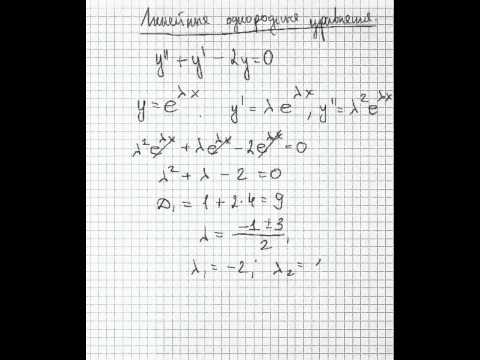 Линейные однородные уравнения.
y'' + y' - 2y = 0
y = e^{λx}. y' = λe^{λx}, y'' = λ²e^{λx}
λ²e^{λx} + λe^{λx} - 2e^{λx} = 0
λ² + λ - 2 = 0
D₁ = 1 + 2·4 = 9
λ = \frac{-1 ± 3}{2},
λ₁ = -2; λ₂ =